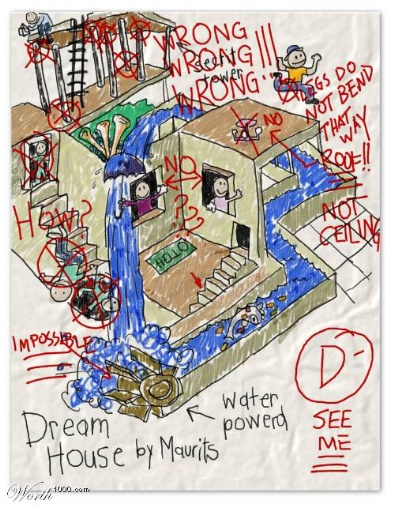 WRONG
WRONG!!!
WRONG!!
secrit
tower
LEGS DO
NOT BEND
THAT WAY
ROOF!!
NOT
CEILING
NO
NO
HOW?
???
HELLO
IMPOSSIBLE
D-
SEE
ME
water
powerd
Dream
House by Maurits
Worth1000.com